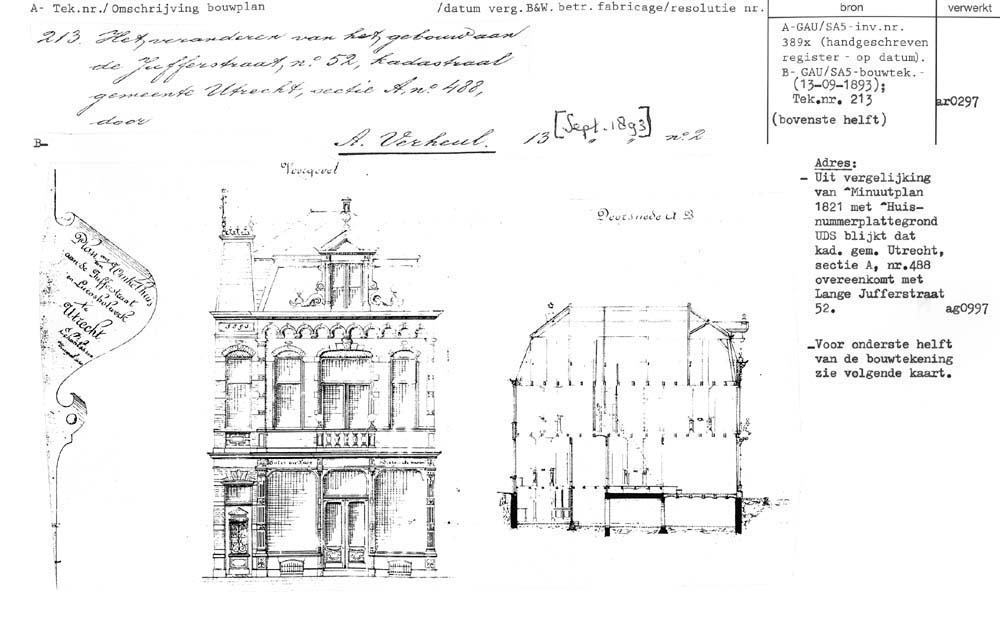 A- Tek.nr./ Omschrijving bouwplan /datum verg.B&W. betr. fabricage/resolutie nr. bron verwerkt
213. Het veranderen van het gebouw aan
de Jufferstraat, nº 52, kadastraal
gemeente Utrecht, sectie A, nº 488,
door
A. Verheul. 13 [Sept. 1893] nº 2
A-GAU/SA5-inv.nr.
389x (handgeschreven
register - op datum).
B- GAU/SA5-bouwtek.-
(13-09-1893);
Tek.nr. 213
(bovenste helft)
ar0297
B-
Voorgevel
Doorsnede A B
Plan
aan de Jufferstraat
te
Utrecht
1893
Adres:
- Uit vergelijking
van ^Minuutplan
1821 met ^Huis-
nummerplattegrond
UDS blijkt dat
kad. gem. Utrecht,
sectie A, nr.488
overeenkomt met
Lange Jufferstraat
52. ag0997
-Voor onderste helft
van de bouwtekening
zie volgende kaart.